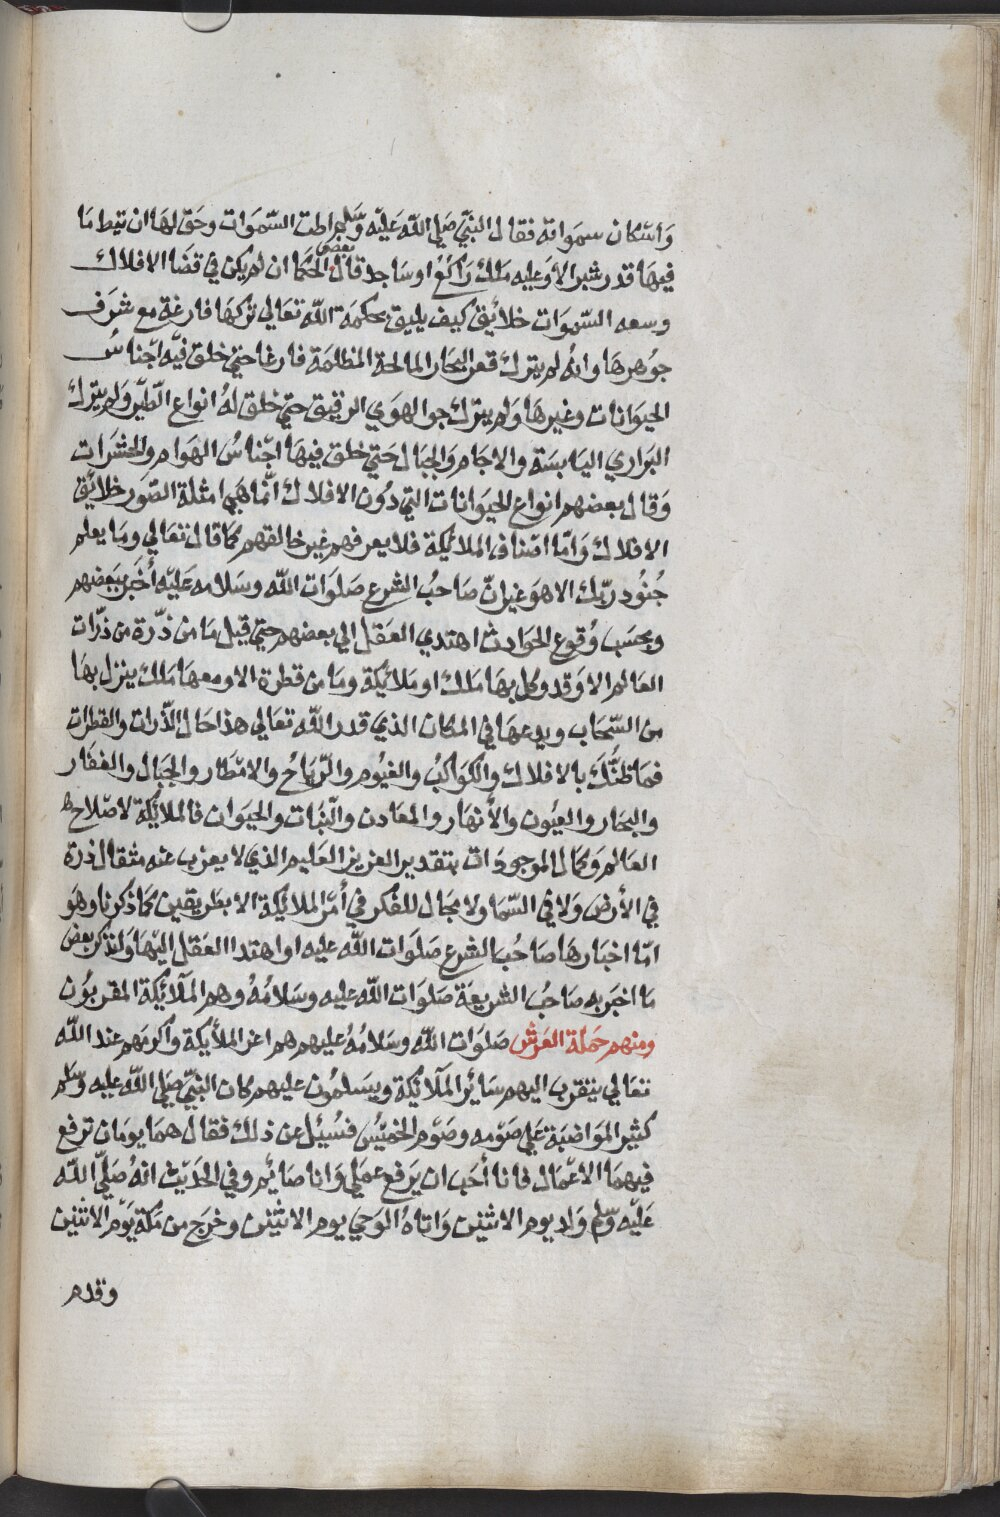 وَاسْكان سموَاته فقال النبيّ صَلي اللّه عَليْه وَسَلم اطت السّمَوَات وحَق لهَا ان تيط مَا
فيهَا قدر شبر الا وَعليه مَلك رَاكعُ او سَاجد قال بعض الحكمَا ان لم يكن في فضَا الافلاك
وسعه السّموَات خلائق كيف يليق بحكمَة اللّه تعَالي تركهَا فارغة مع شرَف
جوُهرهَا وانهُ لم يترك قعر البحَار المالحة المظلمَة فارغا حتي خلق فيْه اجْناسُ
الحيوَانات وغيرهَا وَلم يترك جو الهوَي الرقيق حتي خلق لهُ انواع الطّيْر وَلم يترك
البرَاري اليَابسَة والاجَام وَالجبَال حَتي خلق فيهَا اجْناسُ الهوَام والحشرَات
وَقال بعضهم انواع الحيوَانات التي دوُن الافلاك انمّا هَي امثلة الصّور خلائق
الافلاك وَامّا اصْناف الملائكة فلا يعرفهم غير خالقهم كمَا قال تعَالي ومَا يعلم
جُنوُد ربّك الا هوَ غير انّ صَاحبُ الشرع صَلوَات اللّه وسَلامه عَليْه أخبَر ببَعضهم
وبحسَب وُقوع الحوَادث اهتدي العَقل الي بعضهم حتي قيل مَا من ذرّة من ذرّات
العَالم الا وَقد وكل بهَا مَلك او مَلائكة ومَا من قطرة الا ومعهَا مَلك ينزل بهَا
من السّحَاب ويدعهَا في المكان الذي قدر اللّه تعَالي هذا حَال الذّرات والقطرات
فمَا ظنُّكَ بالافلاك والكوَاكبُ والغيُوم والرّيَاحُ والامْطار والجبَال والقفَار
والبحَار والعيُون والأنهَار والمعَادن والنّبَات والحيوَان فالملائكة لاصْلاح
العَالم وَكمَال الموجودَات بتقدير العَزيز العَليم الذي لا يعزب عنه مثقال ذرة
في الأرض وَلا في السّمَا ولا مجَال للفكر في أمْر الملائكة الا بطريقين كمَا ذكرنا وهوَ
امّا اخبَارهَا صَاحُب الشرع صَلوَات اللّه عليه او اهتدا العَقل اليْهَا وَلنذكر بعض
مَا اخبَر به صَاحبُ الشريعَة صَلوَات اللّه عليه وسَلامُهُ وهم الملآئكة المقربوُن
ومنهم حَملة العَرْش صَلوَات اللّه وسَلامُهُ عليهم هم اعز الملأئكة واكرمَهم عند اللّه
تعَالي يتقرب اليهم سَائر الملآئكة ويسَلموُن عليهم كان النبيّ صَلي اللّه عليه وسَلم
كثير الموَاضبَة عَلي صَوْمه وصَوْم الخميْس فسُيئل عن ذلك فقال همَا يومَان ترفع
فيهمَا الاعْمَال فانا أحَب ان يَرفع عملي وَانا صَائم وفي الحَديْث انهُ صَلّي اللّه
عَليْه وسَلم ولد يوم الاثنين وَاتاهُ الوَحي يوم الاثنيْن وخرَج من مَكة يَوْم الاثنيْن
وقدم